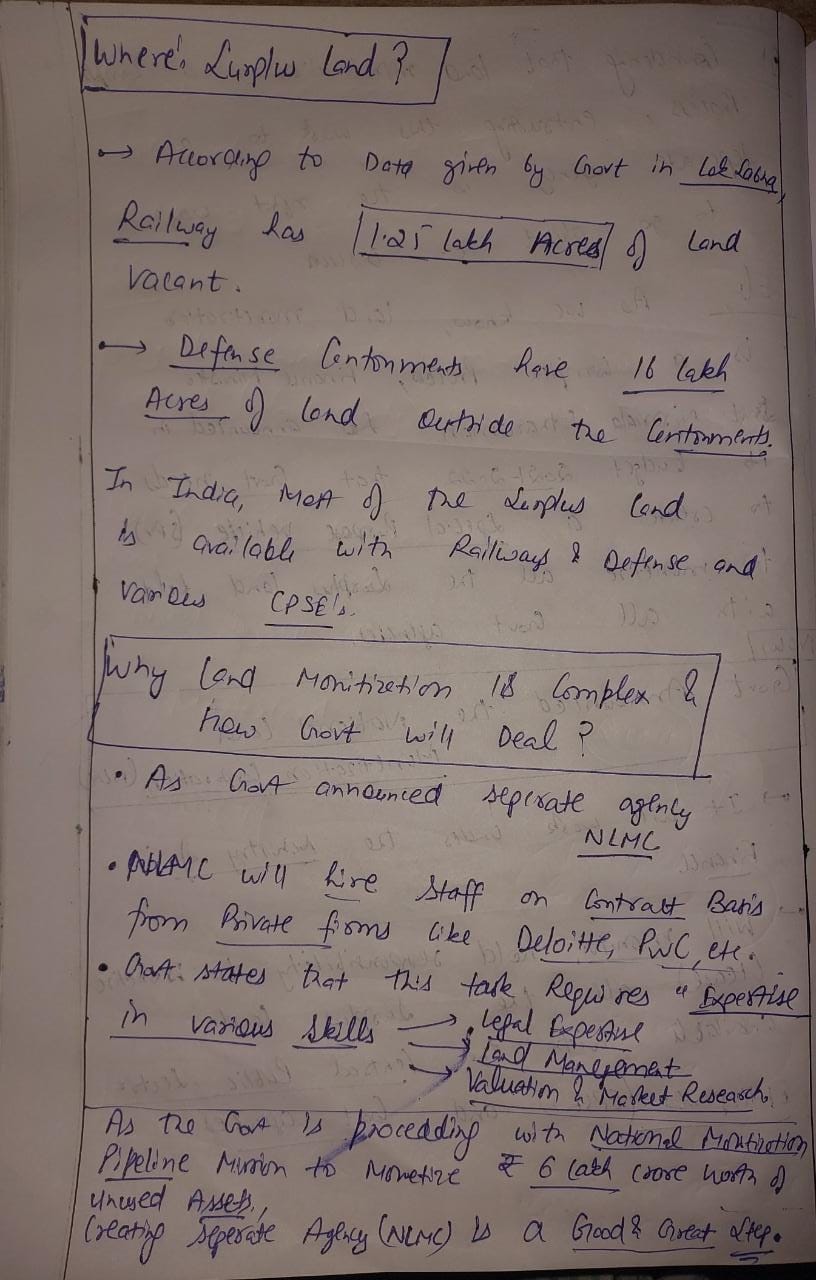 Where's Surplus Land?
→ According to Data given by Govt in Lok Sabha,
Railway has 1.25 lakh Acres of Land
Vacant.
→ Defense Cantonments have 16 lakh
Acres of land outside the Cantonments.
In India, Most of the Surplus land
is available with Railways & Defense and
various CPSE's.
Why Land Monitization is Complex &
how Govt will Deal?
• As Govt announced seperate agency
NLMC
• NLMC will hire staff on Contract Basis
from Private firms like Deloitte, PwC, etc.
• Govt states that this task Requires "Expertise
in various skills → • Legal Expertise
→ • Land Management
→ Valuation & Market Research.
As the Govt is proceeding with National Monitization
Pipeline Mission to Monetize ₹ 6 lakh crore worth of
unused Assets,
Creating Seperate Agency (NLMC) is a Good & Great Step.